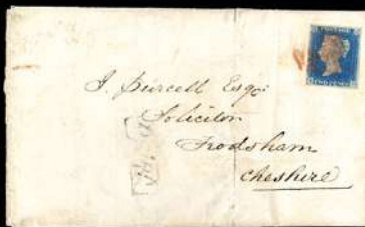 POSTAGE
TWO PENCE
J. Purcell Esqr
Solicitor
Frodsham
Cheshire